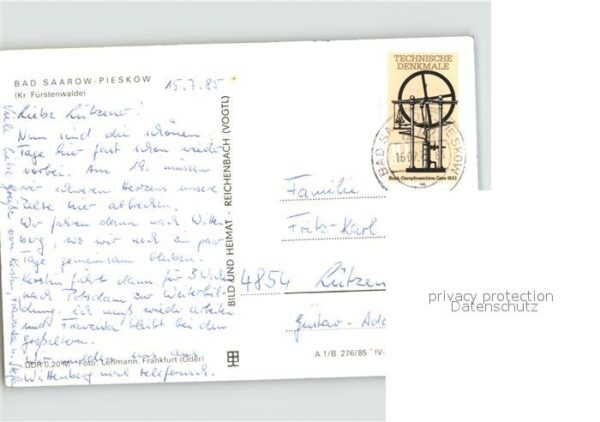 BAD SAAROW-PIESKOW
(Kr. Fürstenwalde)
15.7.85
Liebe Lützener!
Nun sind die schönen
Tage hier fast schon wieder
vorbei. Am 19. müssen
wir schweren Herzens unsere
Zelte hier abbrechen.
Wir fahren dann nach Witten-
berg, wo wir noch ein paar
Tage gemeinsam bleiben.
Kerstin fährt dann für 3 Wochen
nach Potsdam zur Weiterbil-
dung, ich muß wieder arbeiten
und Franziska bleibt bei den
Großeltern.
Wir melden uns aus
Wittenberg noch telefonisch.
Viele liebe Grüße von Kerstin,
DDR 0,20 M Foto: Lehmann, Frankfurt (Oder)
BILD UND HEIMAT · REICHENBACH (VOGTL)
TECHNISCHE
DENKMALE
BAD SAAROW-PIESKOW
Bock-Dampfmaschine, Gera 1833
Familie
Fritz-Karl
4854 Lützen
Gustav-Ado
A 1/B 276/85 IV-
privacy protection
Datenschutz